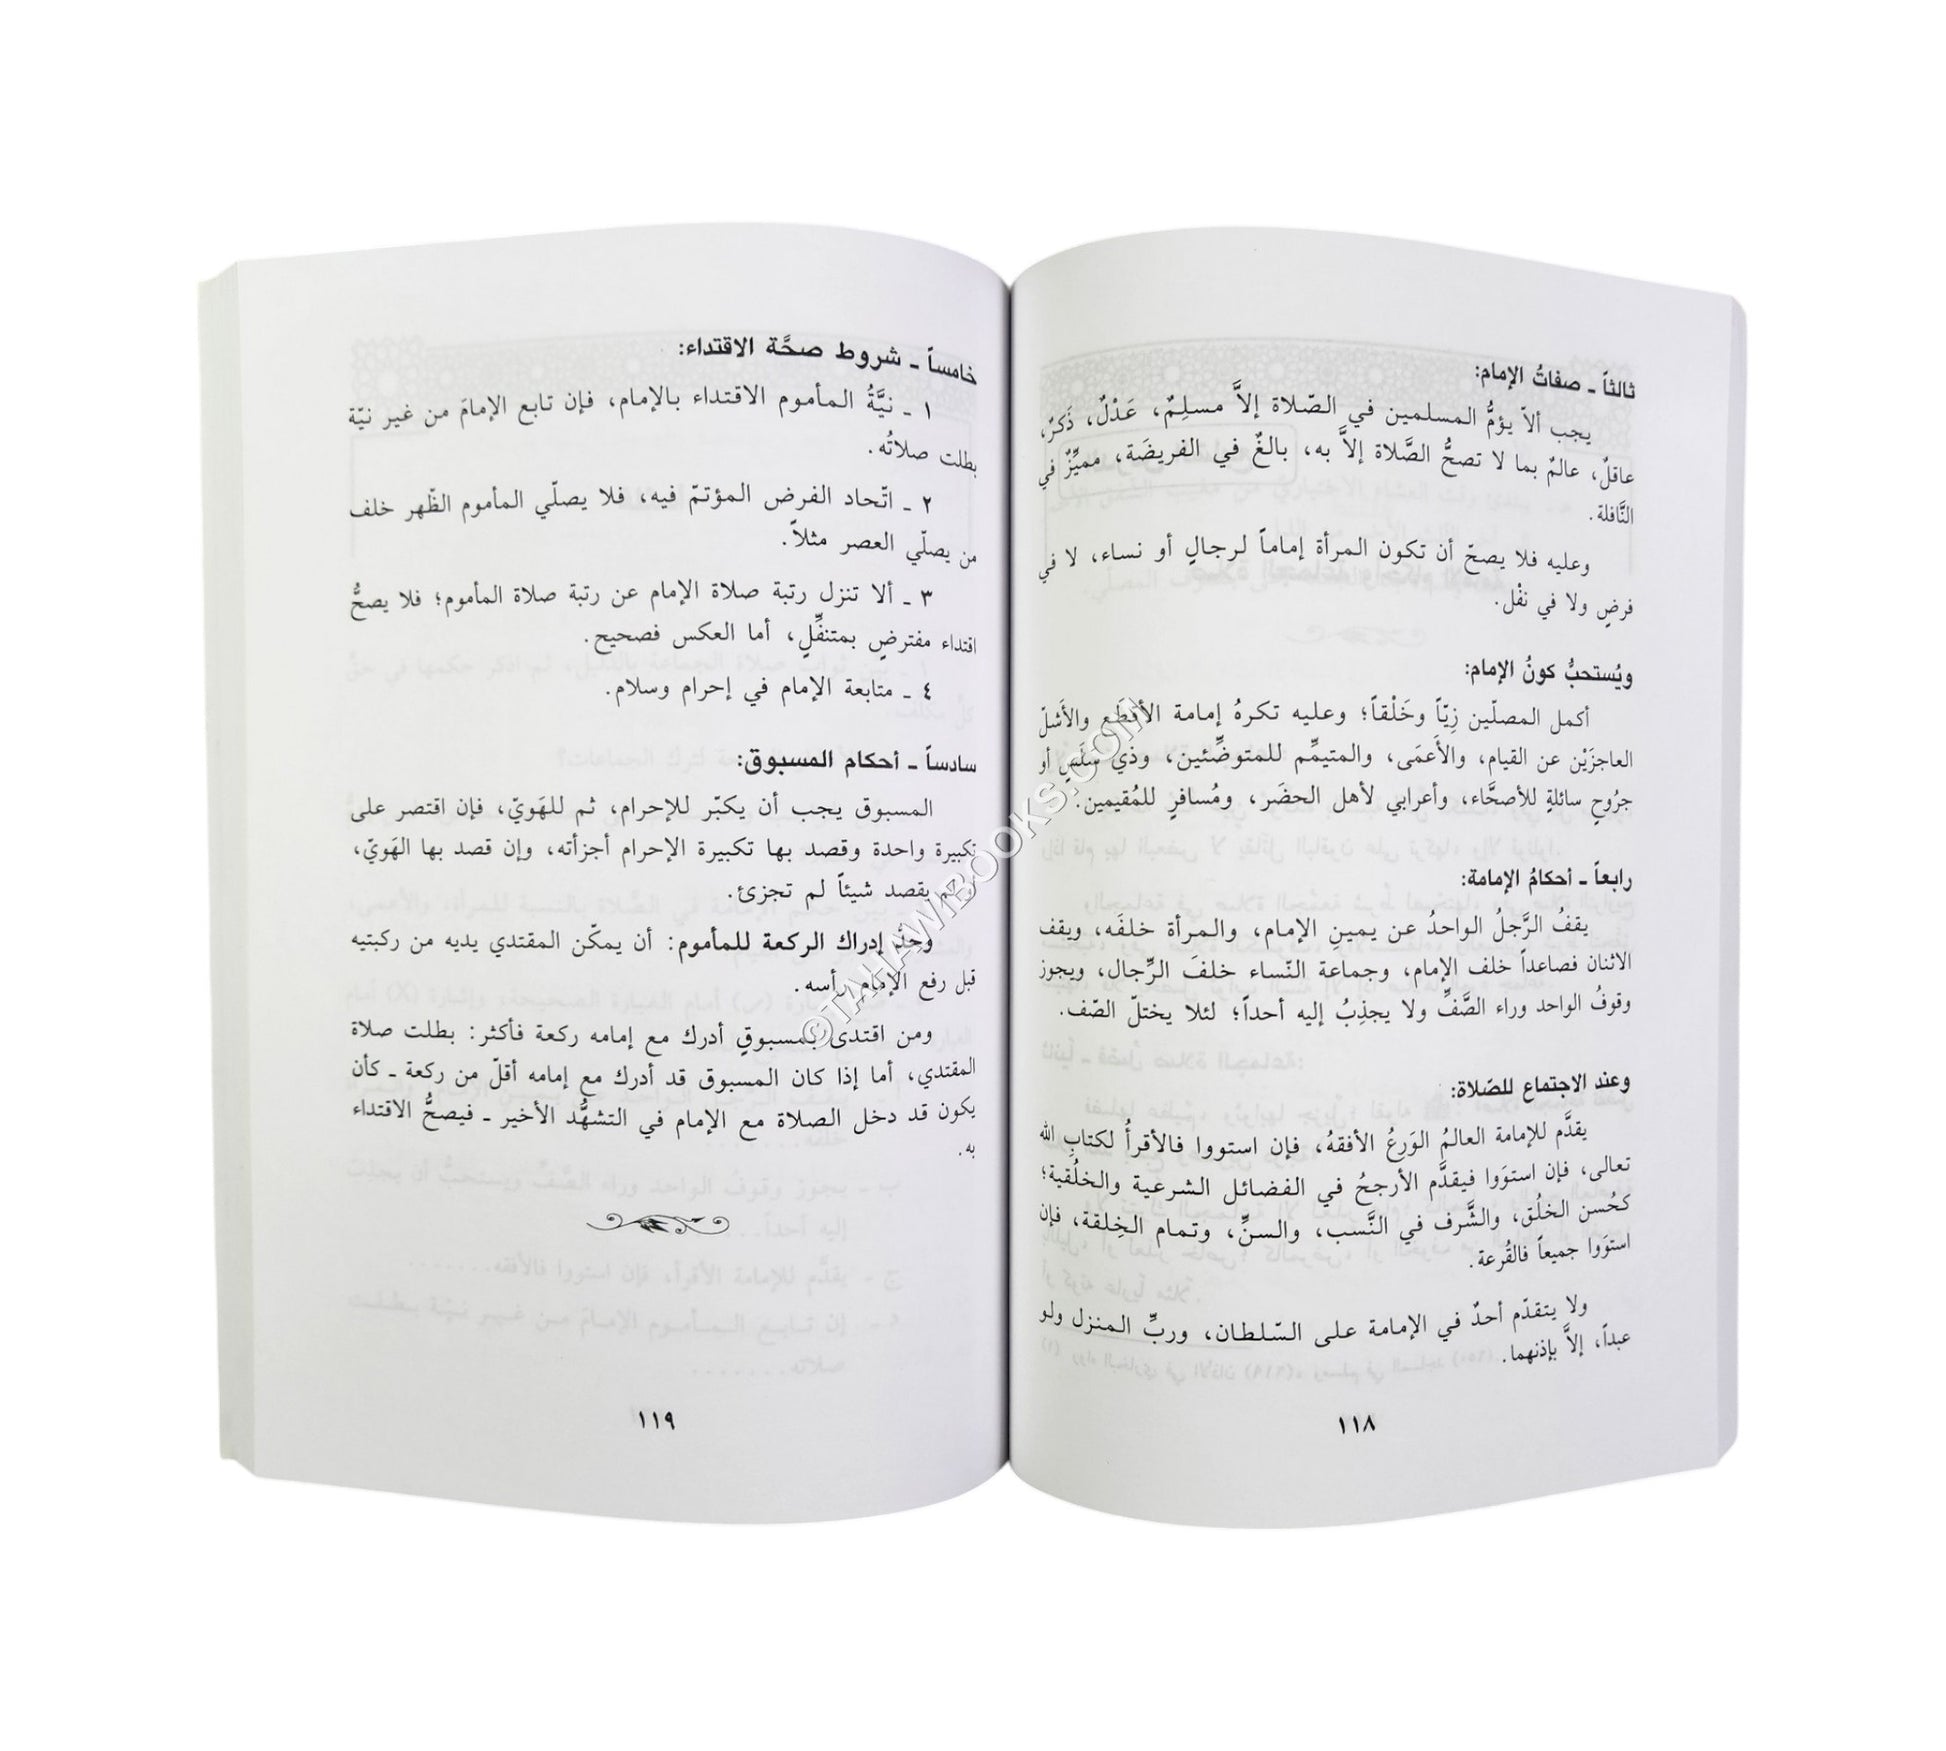 ثالثاً ـ صفاتُ الإمام:
يجب ألاّ يؤمُّ المسلمين في الصّلاة إلاَّ مسلِمٌ، عَدْلٌ، ذَكرٌ،
عاقلٌ، عالمٌ بما لا تصحُّ الصَّلاة إلاَّ به، بالغٌ في الفريضَة، مميِّزٌ في
النَّافلة.
وعليه فلا يصحّ أن تكون المرأة إماماً لرجالٍ أو نساء، لا في
فرضٍ ولا في نفْل.
ويُستحبُّ كونُ الإمام:
أكمل المصلّين زِيّاً وخَلْقاً؛ وعليه تكرهُ إمامة الأقطَع والأَشلّ
العاجزَيْن عن القيام، والأَعمَى، والمتيمِّم للمتوضِّئين، وذي سَلَسٍ أو
جرُوحٍ سائلةٍ للأصحَّاء، وأعرابي لأهل الحضَر، ومُسافرٍ للمُقيمين.
رابعاً ـ أحكامُ الإمامة:
يقفُ الرَّجلُ الواحدُ عن يمينِ الإمام، والمرأة خلفَه، ويقف
الاثنان فصاعداً خلف الإمام، وجماعة النّساء خلفَ الرِّجال، ويجوز
وقوفُ الواحد وراء الصَّفِّ ولا يجذِبُ إليه أحداً؛ لئلا يختلّ الصّف.
وعند الاجتماع للصّلاة:
يقدَّم للإمامة العالمُ الوَرِعُ الأفقهُ، فإن استووا فالأقرأُ لكتابِ الله
تعالى، فإن استوَوا فيقدَّم الأرجحُ في الفضائل الشرعية والخلُقية؛
كحُسن الخلُق، والشَّرف في النَّسب، والسنِّ، وتمام الخِلقة، فإن
استوَوا جميعاً فالقُرعة.
ولا يتقدّم أحدٌ في الإمامة على السّلطان، وربِّ المنزل ولو
عبداً، إلاَّ بإذنهما.
١١٨
خامساً ـ شروط صحَّة الاقتداء:
١ ـ نيَّةُ المأموم الاقتداء بالإمام، فإن تابع الإمامَ من غير نيّة
بطلت صلاتُه.
٢ ـ اتّحاد الفرض المؤتمّ فيه، فلا يصلّي المأموم الظّهر خلف
من يصلّي العصر مثلاً.
٣ ـ ألا تنزل رتبة صلاة الإمام عن رتبة صلاة المأموم؛ فلا يصحُّ
اقتداء مفترضٍ بمتنفِّلٍ، أما العكس فصحيح.
٤ ـ متابعة الإمام في إحرام وسلام.
سادساً ـ أحكام المسبوق:
المسبوق يجب أن يكبّر للإحرام، ثم للهَويّ، فإن اقتصر على
تكبيرة واحدة وقصد بها تكبيرة الإحرام أجزأته، وإن قصد بها الهَويّ،
يقصد شيئاً لم تجزئ.
وحدُّ إدراك الركعة للمأموم: أن يمكّن المقتدي يديه من ركبتيه
قبل رفع الإمام رأسه.
ومن اقتدى بمسبوقٍ أدرك مع إمامه ركعة فأكثر: بطلت صلاة
المقتدي، أما إذا كان المسبوق قد أدرك مع إمامه أقلّ من ركعة ـ كأن
يكون قد دخل الصلاة مع الإمام في التشهُّد الأخير ـ فيصحُّ الاقتداء
به.
١١٩
©TAHAWIBOOKS.COM